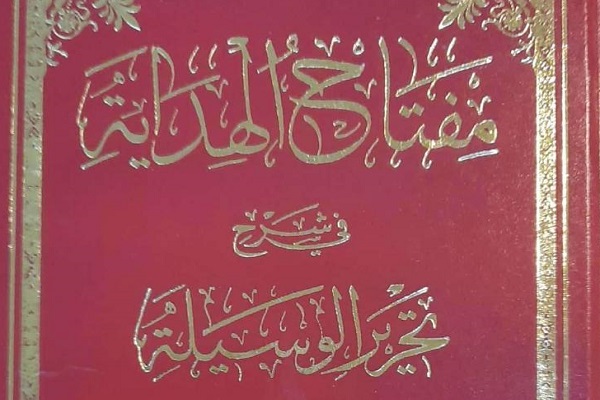 مِفتاحُ الهِدايَةِ
في شرح
تحرير الوسيلةُ